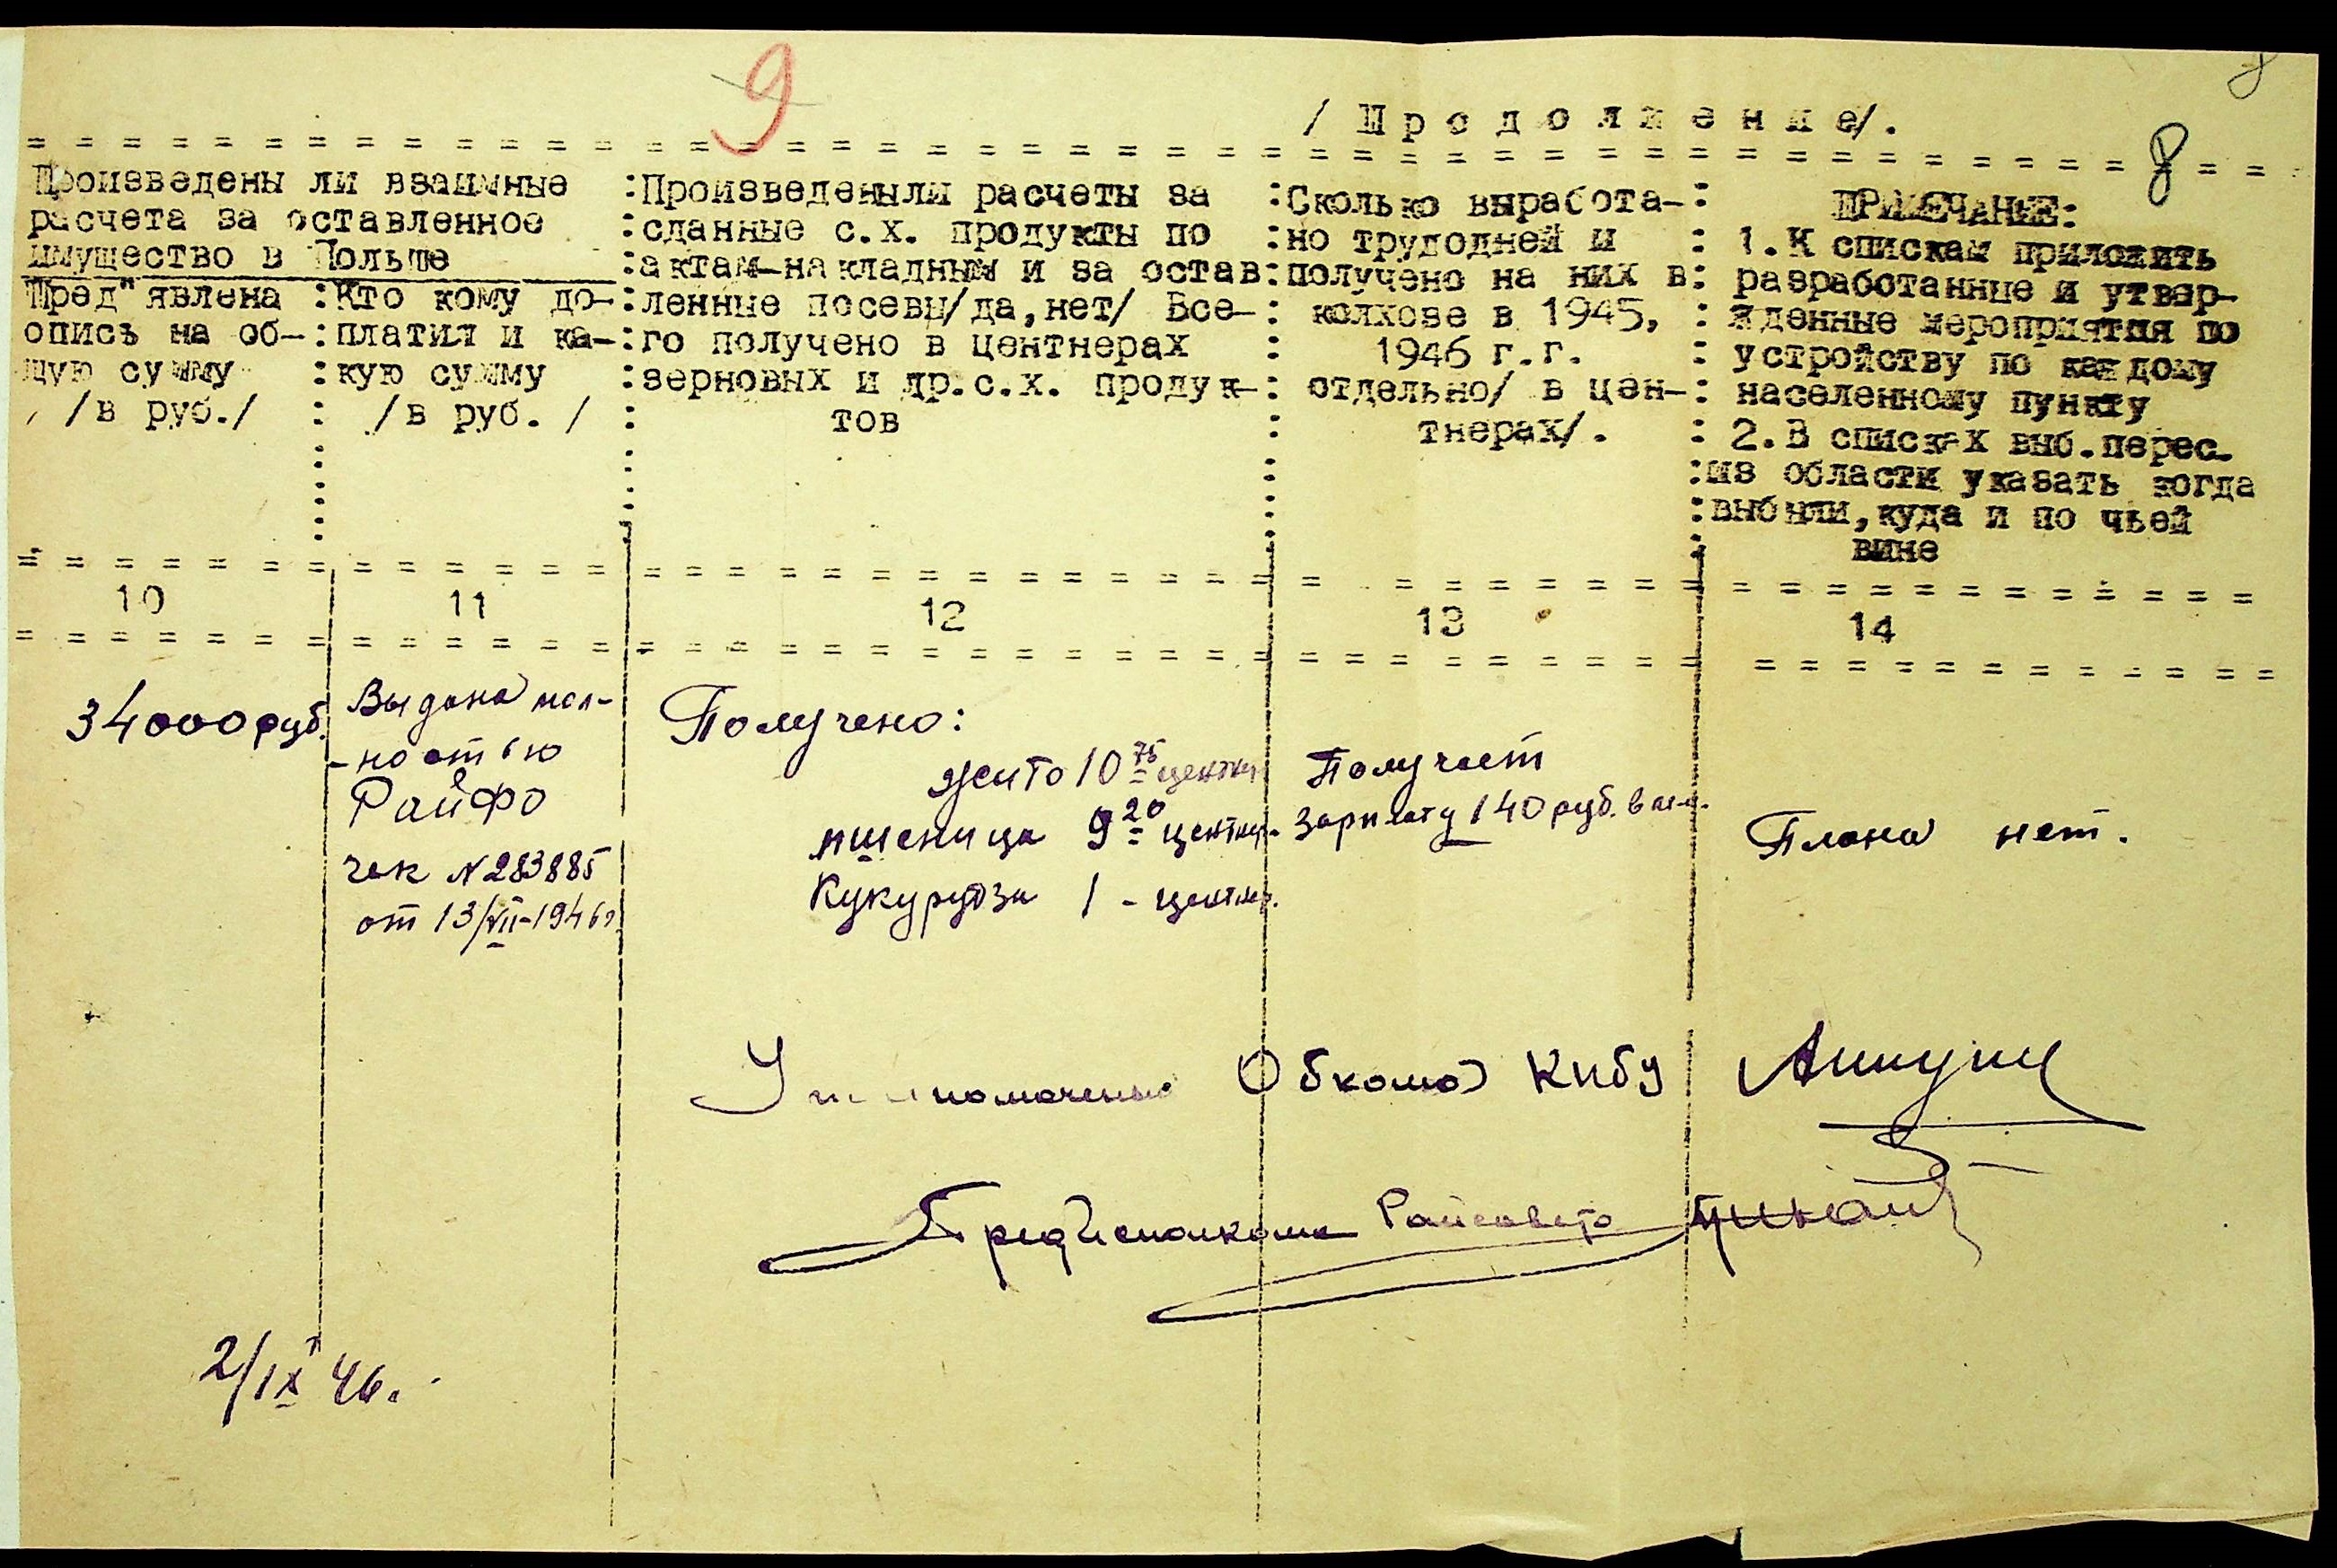 9
/ П р о д о л ж е н и е/.
8
Произведены ли взаимные
расчета за оставленное
имущество в Польше
Пред"явлена
опись на об-
щую сумму
/в руб./
Кто кому до-
платил и ка-
кую сумму
/в руб. /
Произведены ли расчеты за
сданные с.х. продукты по
актам-накладным и за остав
ленные посевы/да,нет/ Все-
го получено в центнерах
зерновых и др.с.х. продук-
тов
Сколько выработа-
но трудодней и
получено на них в
колхозе в 1945,
1946 г.г.
отдельно/ в цен-
тнерах/.
ПРИМЕЧАНИЕ:
1.К спискам приложить
разработанные и утвер-
жденные мероприятия по
устройству по каждому
населенному пункту
2.В списках выб.перес.
из области указать когда
выбыли,куда и по чьей
вине
10 11 12 13 14
34000 руб.
Выдана пол-
-ностью
Райфо
чек №283885
от 13/VII-1946г
Получено:
жито 10 75 центнер
пшеница 9 20 центнер.
Кукурудза 1 - центнер.
Получает
зарплату 140 руб. в
Плана нет.
Обкома КПбУ
Пред Исполкома Райсовета
2/IX 46.